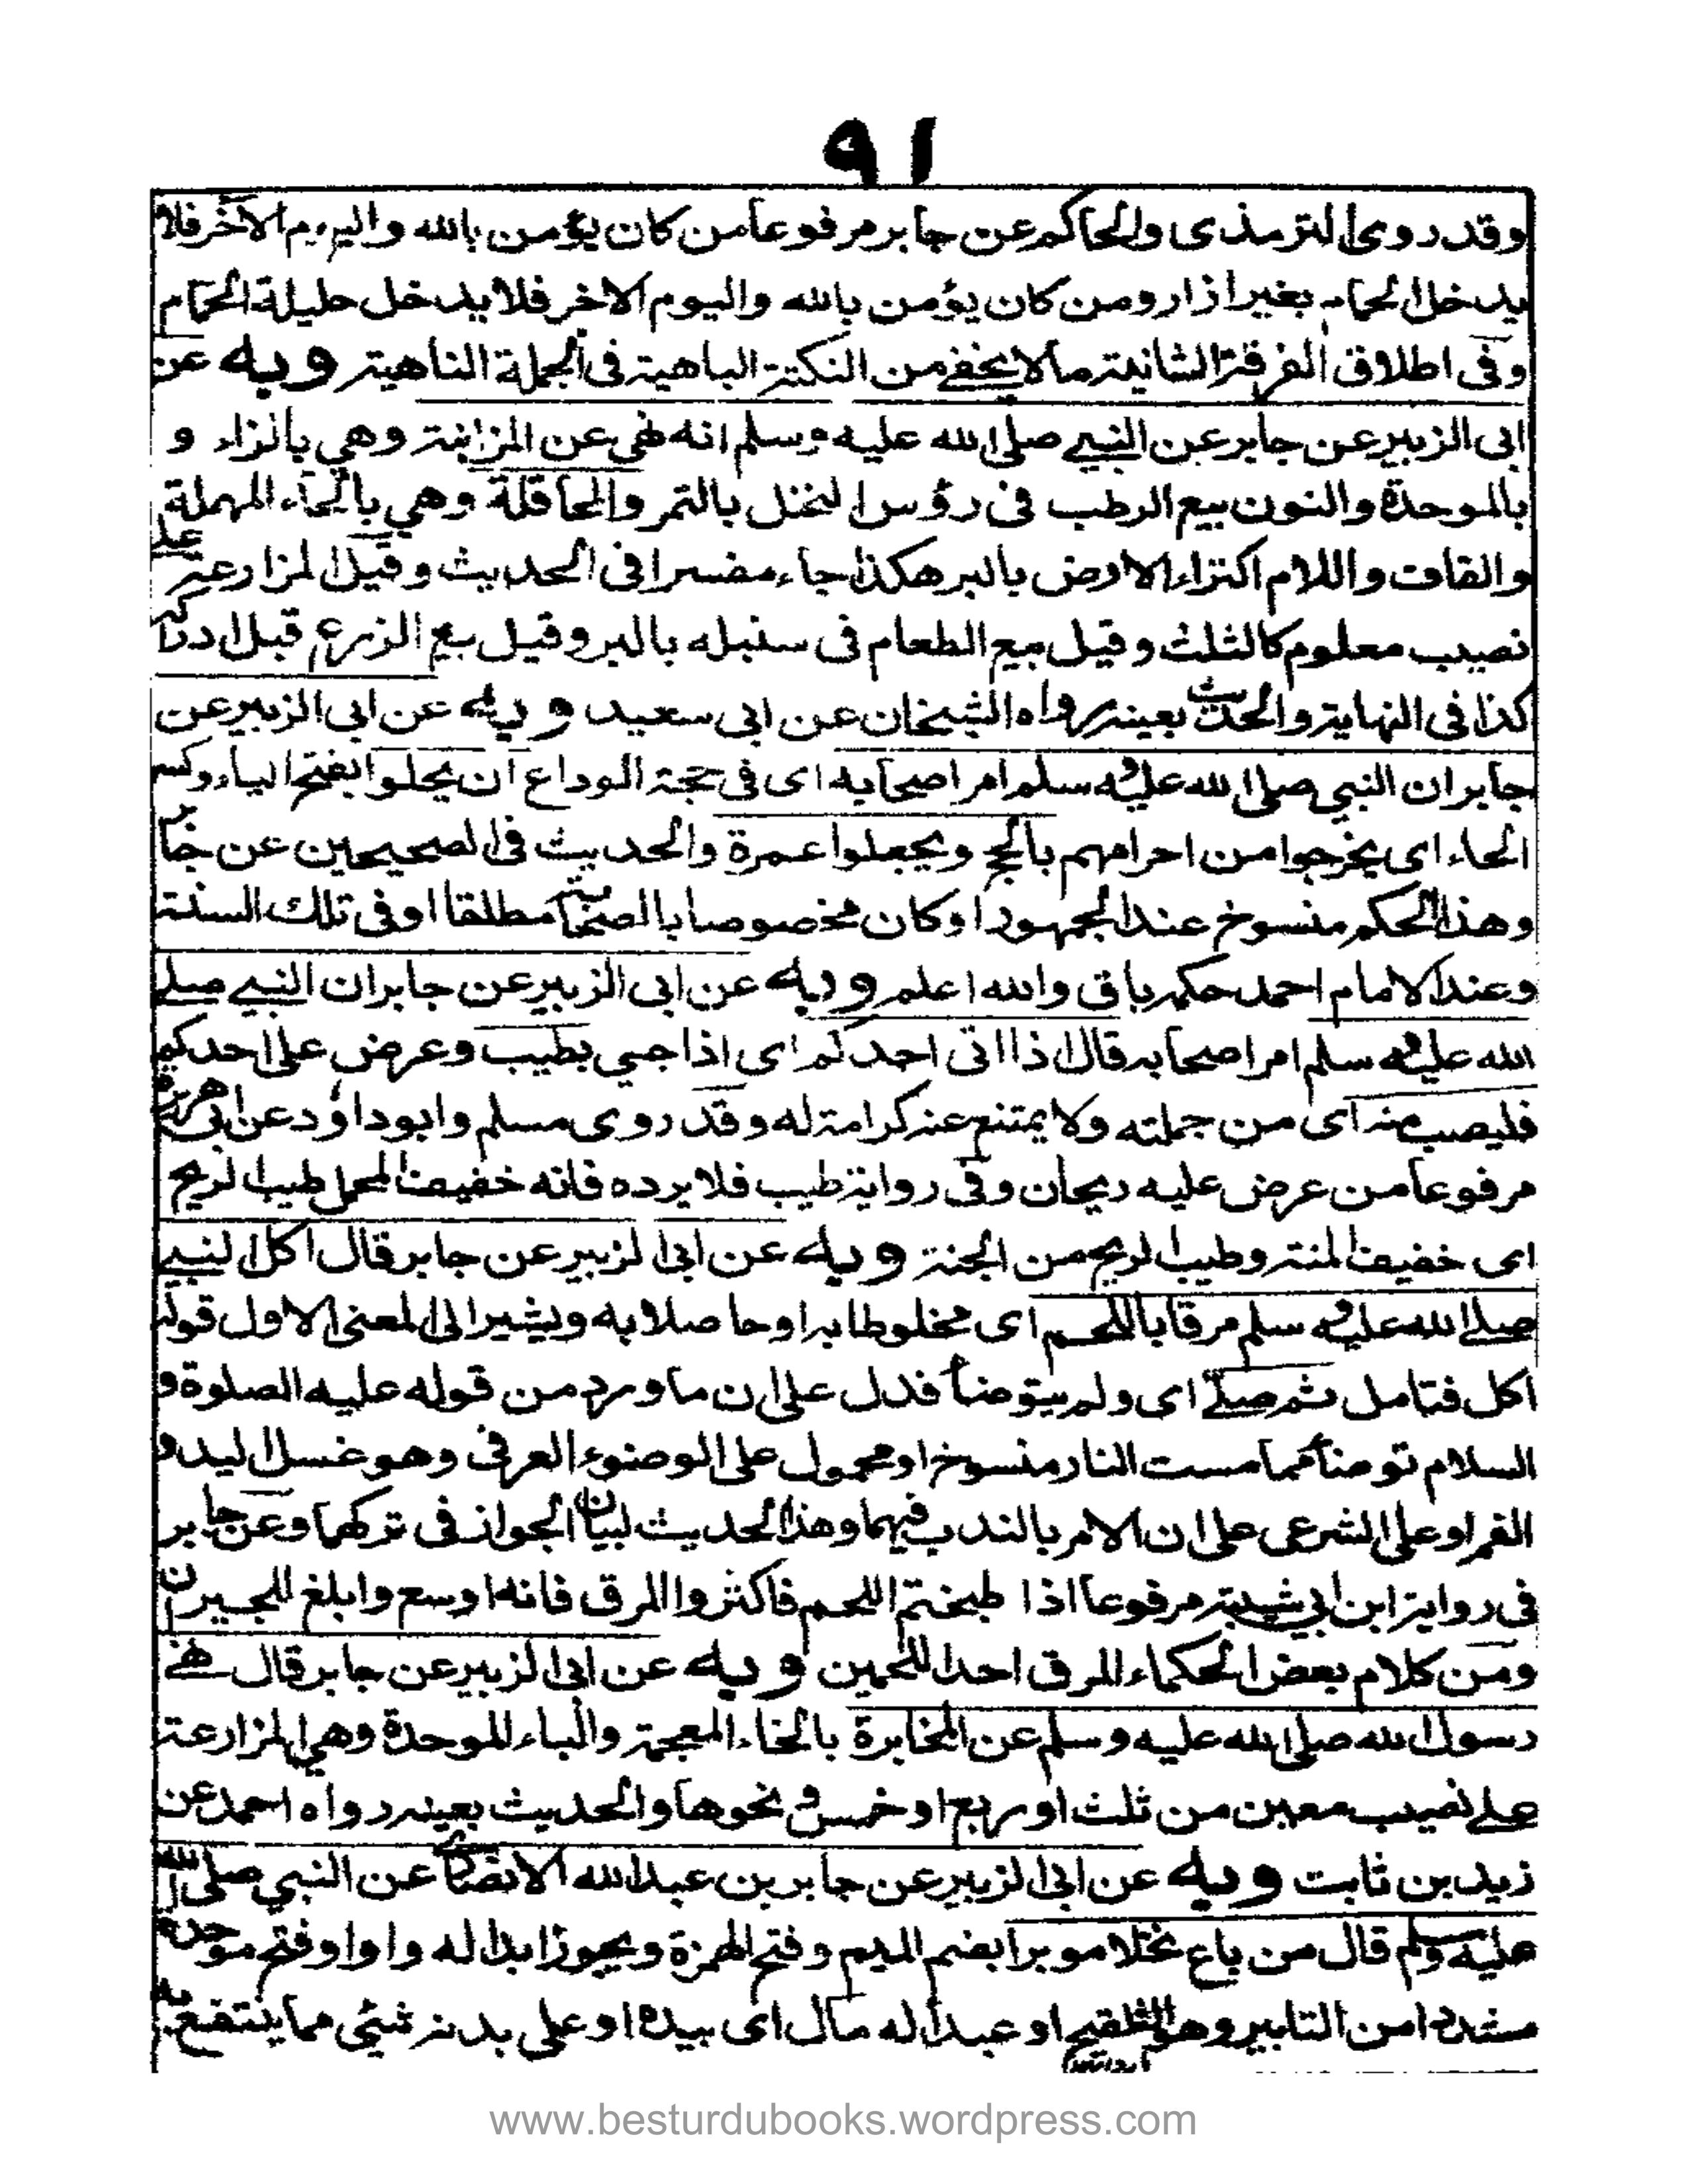 ٩١
وقد روى الترمذى والحاكم عن جابر مرفوعا من كان يؤمن بالله واليوم الآخر فلا
يدخل الحمام بغير ازار ومن كان يؤمن بالله واليوم الاخر فلا يدخل حليلة الحمام
وفى اطلاق الفرقة الثانية ما لا يخفى من النكتة الباهية فى الجملة الناهية وبه عن
ابى الزبير عن جابر عن النبى صلى الله عليه وسلم انه نهى عن المزابنة وهى بالزاء و
بالموحدة والنون بيع الرطب فى رؤس النخل بالتمر والمحاقلة وهى بالحاء المهملة
والقاف واللام اكتراء الارض بالبر هكذا جاء مفسرا فى الحديث وقيل المزارعة على
نصيب معلوم كالثلث وقيل بيع الطعام فى سنبله بالبر وقيل بيع الزرع قبل ادراكه
كذا فى النهاية والحديث بعينه رواه الشيخان عن ابى سعيد وبه عن ابى الزبير عن
جابر ان النبى صلى الله عليه وسلم امر اصحابه اى فى حجة الوداع ان يحلوا بفتح الياء وكسر
الحاء اى يخرجوا من احرامهم بالحج ويجعلوا عمرة والحديث فى الصحيحين عن جابر
وهذا الحكم منسوخ عند الجمهور او كان مخصوصا بالصحابة مطلقا او فى تلك السنة
وعند الامام احمد حكمه باق والله اعلم وبه عن ابى الزبير عن جابر ان النبى صلى
الله عليه وسلم امر اصحابه قال اذا اتى احدكم اى اذا جيى بطيب وعرض على احدكم
فليصب منه اى من جملته ولا يمتنع عنه كرامة له وقد روى مسلم وابوداؤد عن ابى هريرة
مرفوعا من عرض عليه ريحان وفى رواية طيب فلا يرده فانه خفيف المحمل طيب الريح
اى خفيف المنة وطيب الريح من الجنة وبه عن ابى الزبير عن جابر قال اكل النبى
صلى الله عليه وسلم مرقا باللحم اى مخلوطا به او حاصلا به ويشير الى المعنى الاول قوله
اكل فتامل ثم صلى اى ولم يتوضأ فدل على ان ما ورد من قوله عليه الصلوة و
السلام توضأ مما مست النار منسوخ او محمول على الوضوء العرفى وهو غسل اليد و
الفم او على الشرعى على ان الامر بالندب فيهما وهذا الحديث لبيان الجواز فى تركهما وعن جابر
فى رواية ابن ابى شيبة مرفوعا اذا طبختم اللحم فاكثروا المرق فانه اوسع وابلغ للجيران
ومن كلام بعض الحكماء المرق احد اللحمين وبه عن ابى الزبير عن جابر قال نهى
رسول الله صلى الله عليه وسلم عن المخابرة بالخاء المعجمة والباء الموحدة وهى المزارعة
على نصيب معين من ثلث او ربع او خمس ونحوها والحديث بعينه رواه احمد عن
زيد بن ثابت وبه عن ابى الزبير عن جابر بن عبد الله الانصارى عن النبى صلى الله
عليه وسلم قال من باع نخلا موبرا بضم الميم وفتح الهمزة ويجوز ابداله واوا وفتح موحدة
مشددا من التابير وهو التلقيح او عبدا له مال اى بيده او على بدنه شئى مما ينتفع به
www.besturdubooks.wordpress.com